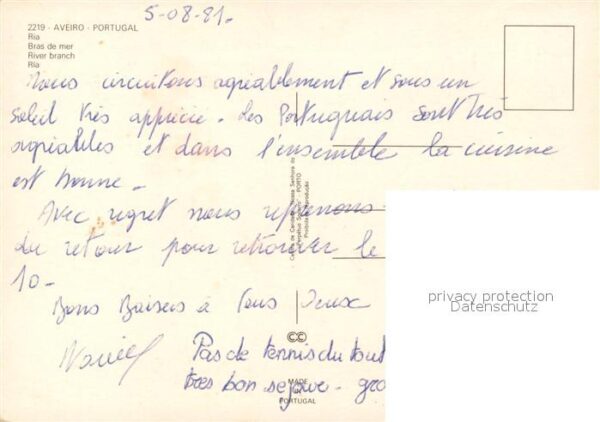 5-08-81.
2219 - AVEIRO - PORTUGAL
Ria
Bras de mer
River branch
Ria
Nous circuitons agréablement et sous un
soleil très apprécié. Les Portuguais sont très
agréables et dans l'ensemble la cuisine
est bonne.
Avec regret nous reprenons
du retour pour retrouver le
10.
Bons Baisers à Tous Deux
Pas de tennis du tout
très bon sejour - gro
MADE
IN
PORTUGAL
privacy protection
Datenschutz